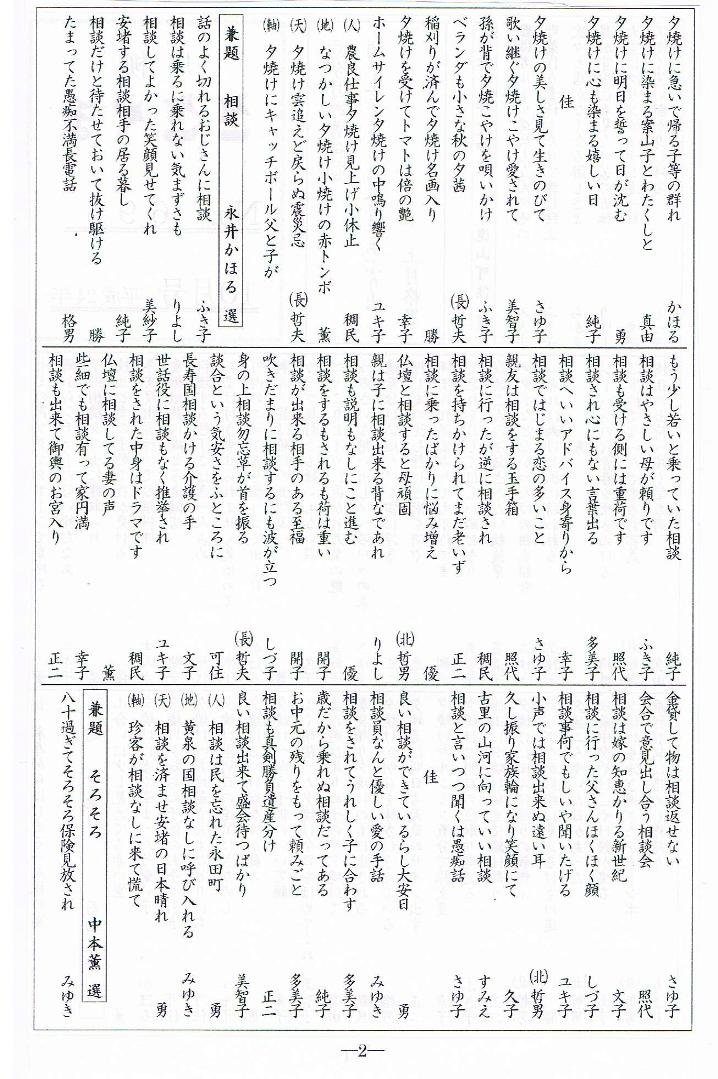 夕焼けに急いで帰る子等の群れ　かほる
夕焼けに染まる案山子とわたくしと　真由
夕焼けに明日を誓って日が沈む　勇
夕焼けに心も染まる嬉しい日　純子
佳
夕焼けの美しさ見て生きのびて　さゆ子
歌い継ぐ夕焼けこやけ愛されて　美智子
孫が背で夕焼こやけを唄いかけ　ふき子
ベランダも小さな秋の夕茜　㈻哲夫
稲刈りが済んで夕焼け名画入り　勝
夕焼けを受けてトマトは倍の艶　幸子
ホームサイレン夕焼けの中鳴り響く　ユキ子
(人)　農良仕事夕焼け見上げ小休止　稠民
(地)　なつかしい夕焼け小焼けの赤トンボ　薫
(天)　夕焼け雲追えど戻らぬ震災忌　(長)哲夫
(軸)　夕焼けにキャッチボール父と子が
兼題　相談　永井かほる選
話のよく切れるおじさんに相談　ふき子
相談は乗るに乗れない気まずさも　りよし
相談してよかった笑顔見せてくれ　美紗子
安堵する相談相手の居る暮し　純子
相談だけと待たせておいて抜け駆ける　勝
たまってた愚痴不満長電話　格男
もう少し若いと乗っていた相談　純子
相談はやさしい母が頼りです　ふき子
相談も受ける側には重荷です　照代
相談され心にもない言葉出る　多美子
相談へいいアドバイス身寄りから　幸子
相談ではじまる恋の多いこと　さゆ子
親友は相談をする玉手箱　照代
相談に行ったが逆に相談され　稠民
相談を持ちかけられてまだ老いず　正二
相談に乗ったばかりに悩み増え　優
仏壇と相談すると母頑固　(北)哲男
親は子に相談出来る背なであれ　りよし
相談も説明もなしにこと進む　優
相談をするもされるも荷は重い　開子
相談が出来る相手のある至福　開子
吹きだまりに相談するにも波が立つ　しづ子
身の上相談勿忘草が首を振る　(長)哲夫
談合という気安さをふところに　可住
長寿国相談かける介護の手　文子
世話役に相談もなく推挙され　ユキ子
相談をされた中身はドラマです　稠民
仏壇に相談してる妻の声　薫
些細でも相談有って家円満　幸子
相談も出来て御輿のお宮入り　正二
金貸して物は相談返せない　さゆ子
会合で意見出し合う相談会　照代
相談は嫁の知恵かりる新世紀　文子
相談に行った父さんほくほく顔　しづ子
相談事何でもしいや聞いたげる　ユキ子
小声では相談出来ぬ遠い耳　(北)哲男
久し振り家族輪になり笑顔にて　久子
古里の山河に向っていい相談　すみえ
相談と言いつつ聞くは愚痴話　さゆ子
佳
良い相談ができているらし大安日　勇
相談員なんと優しい愛の手話　みゆき
相談をされてうれしく子に合わす　多美子
歳だから乗れぬ相談だってある　純子
お中元の残りをもって頼みごと　多美子
相談も真剣勝負遺産分け　正二
良い相談出来て盛会待つばかり　美智子
(人)　相談は民を忘れた永田町　勇
(地)　黄泉の国相談なしに呼び入れる　みゆき
(天)　相談を済ませ安堵の日本晴れ　勇
(軸)　珍客が相談なしに来て慌て
兼題　そろそろ　中本薫選
八十過ぎてそろそろ保険見放され　みゆき
―2―